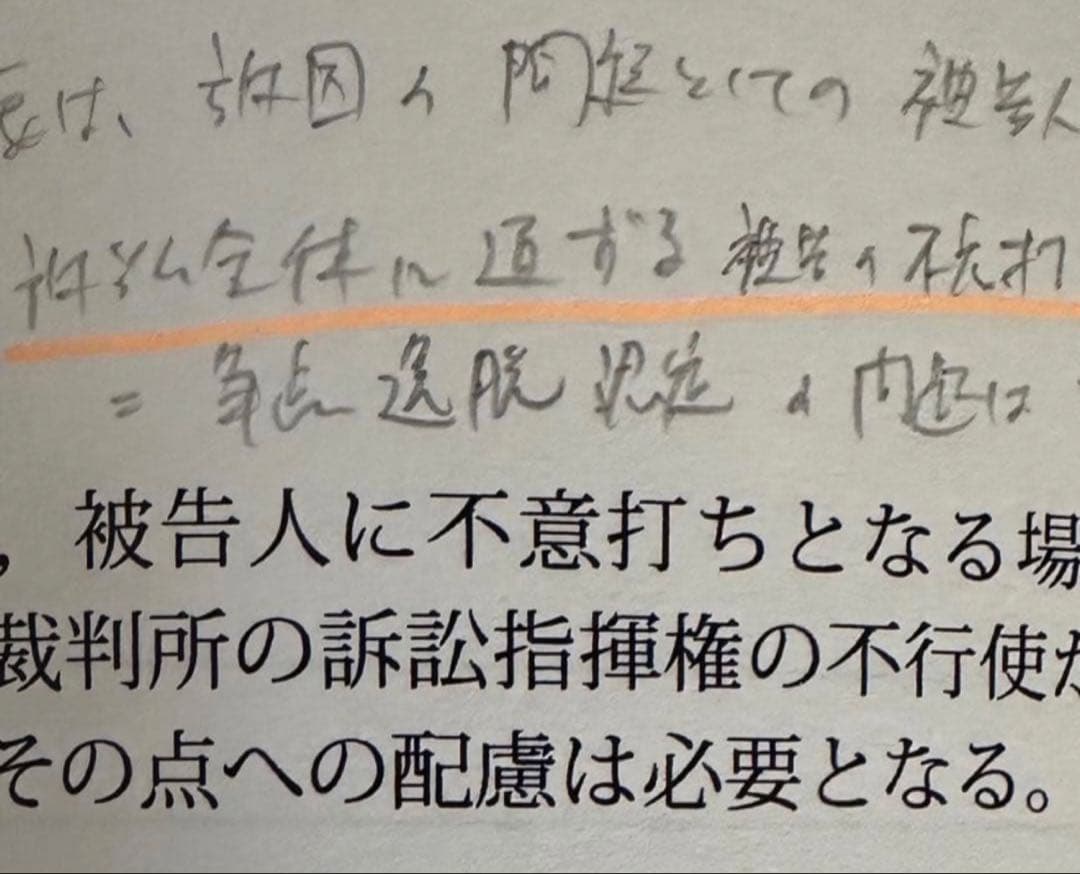 は、訴因の問題としての被告人
訴訟全体に通ずる被告の不意打
=争点逸脱認定の問題は
，被告人に不意打ちとなる場
裁判所の訴訟指揮権の不行使が
その点への配慮は必要となる。